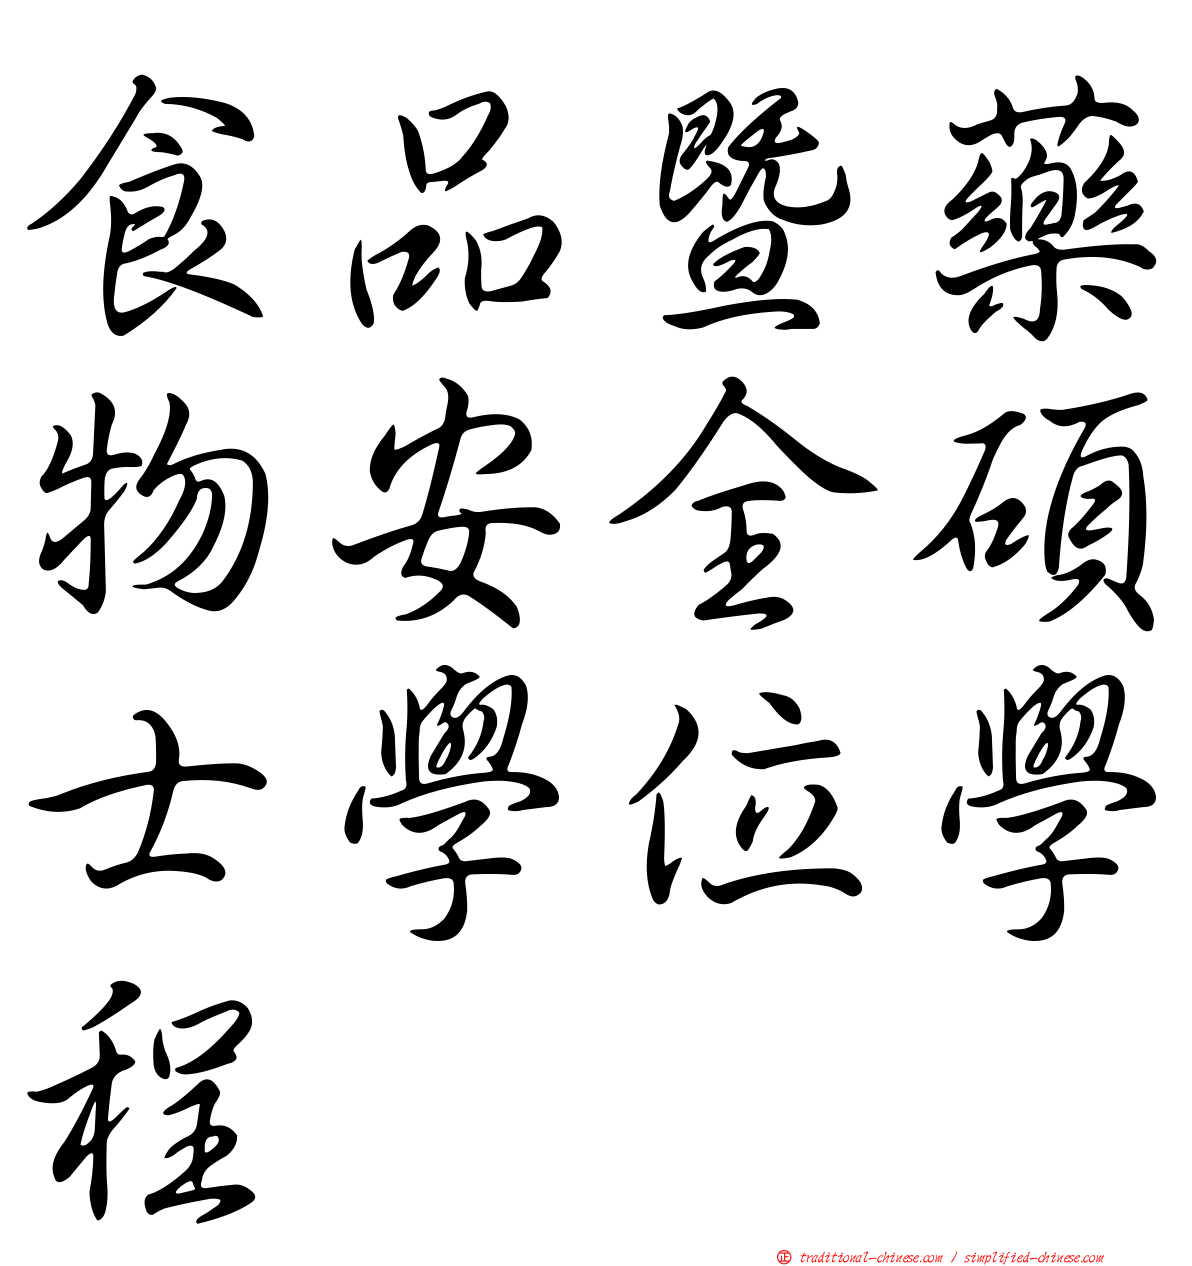 食品暨藥
物安全碩
士學位學
程
正 traditional-chinese.com / simplified-chinese.com